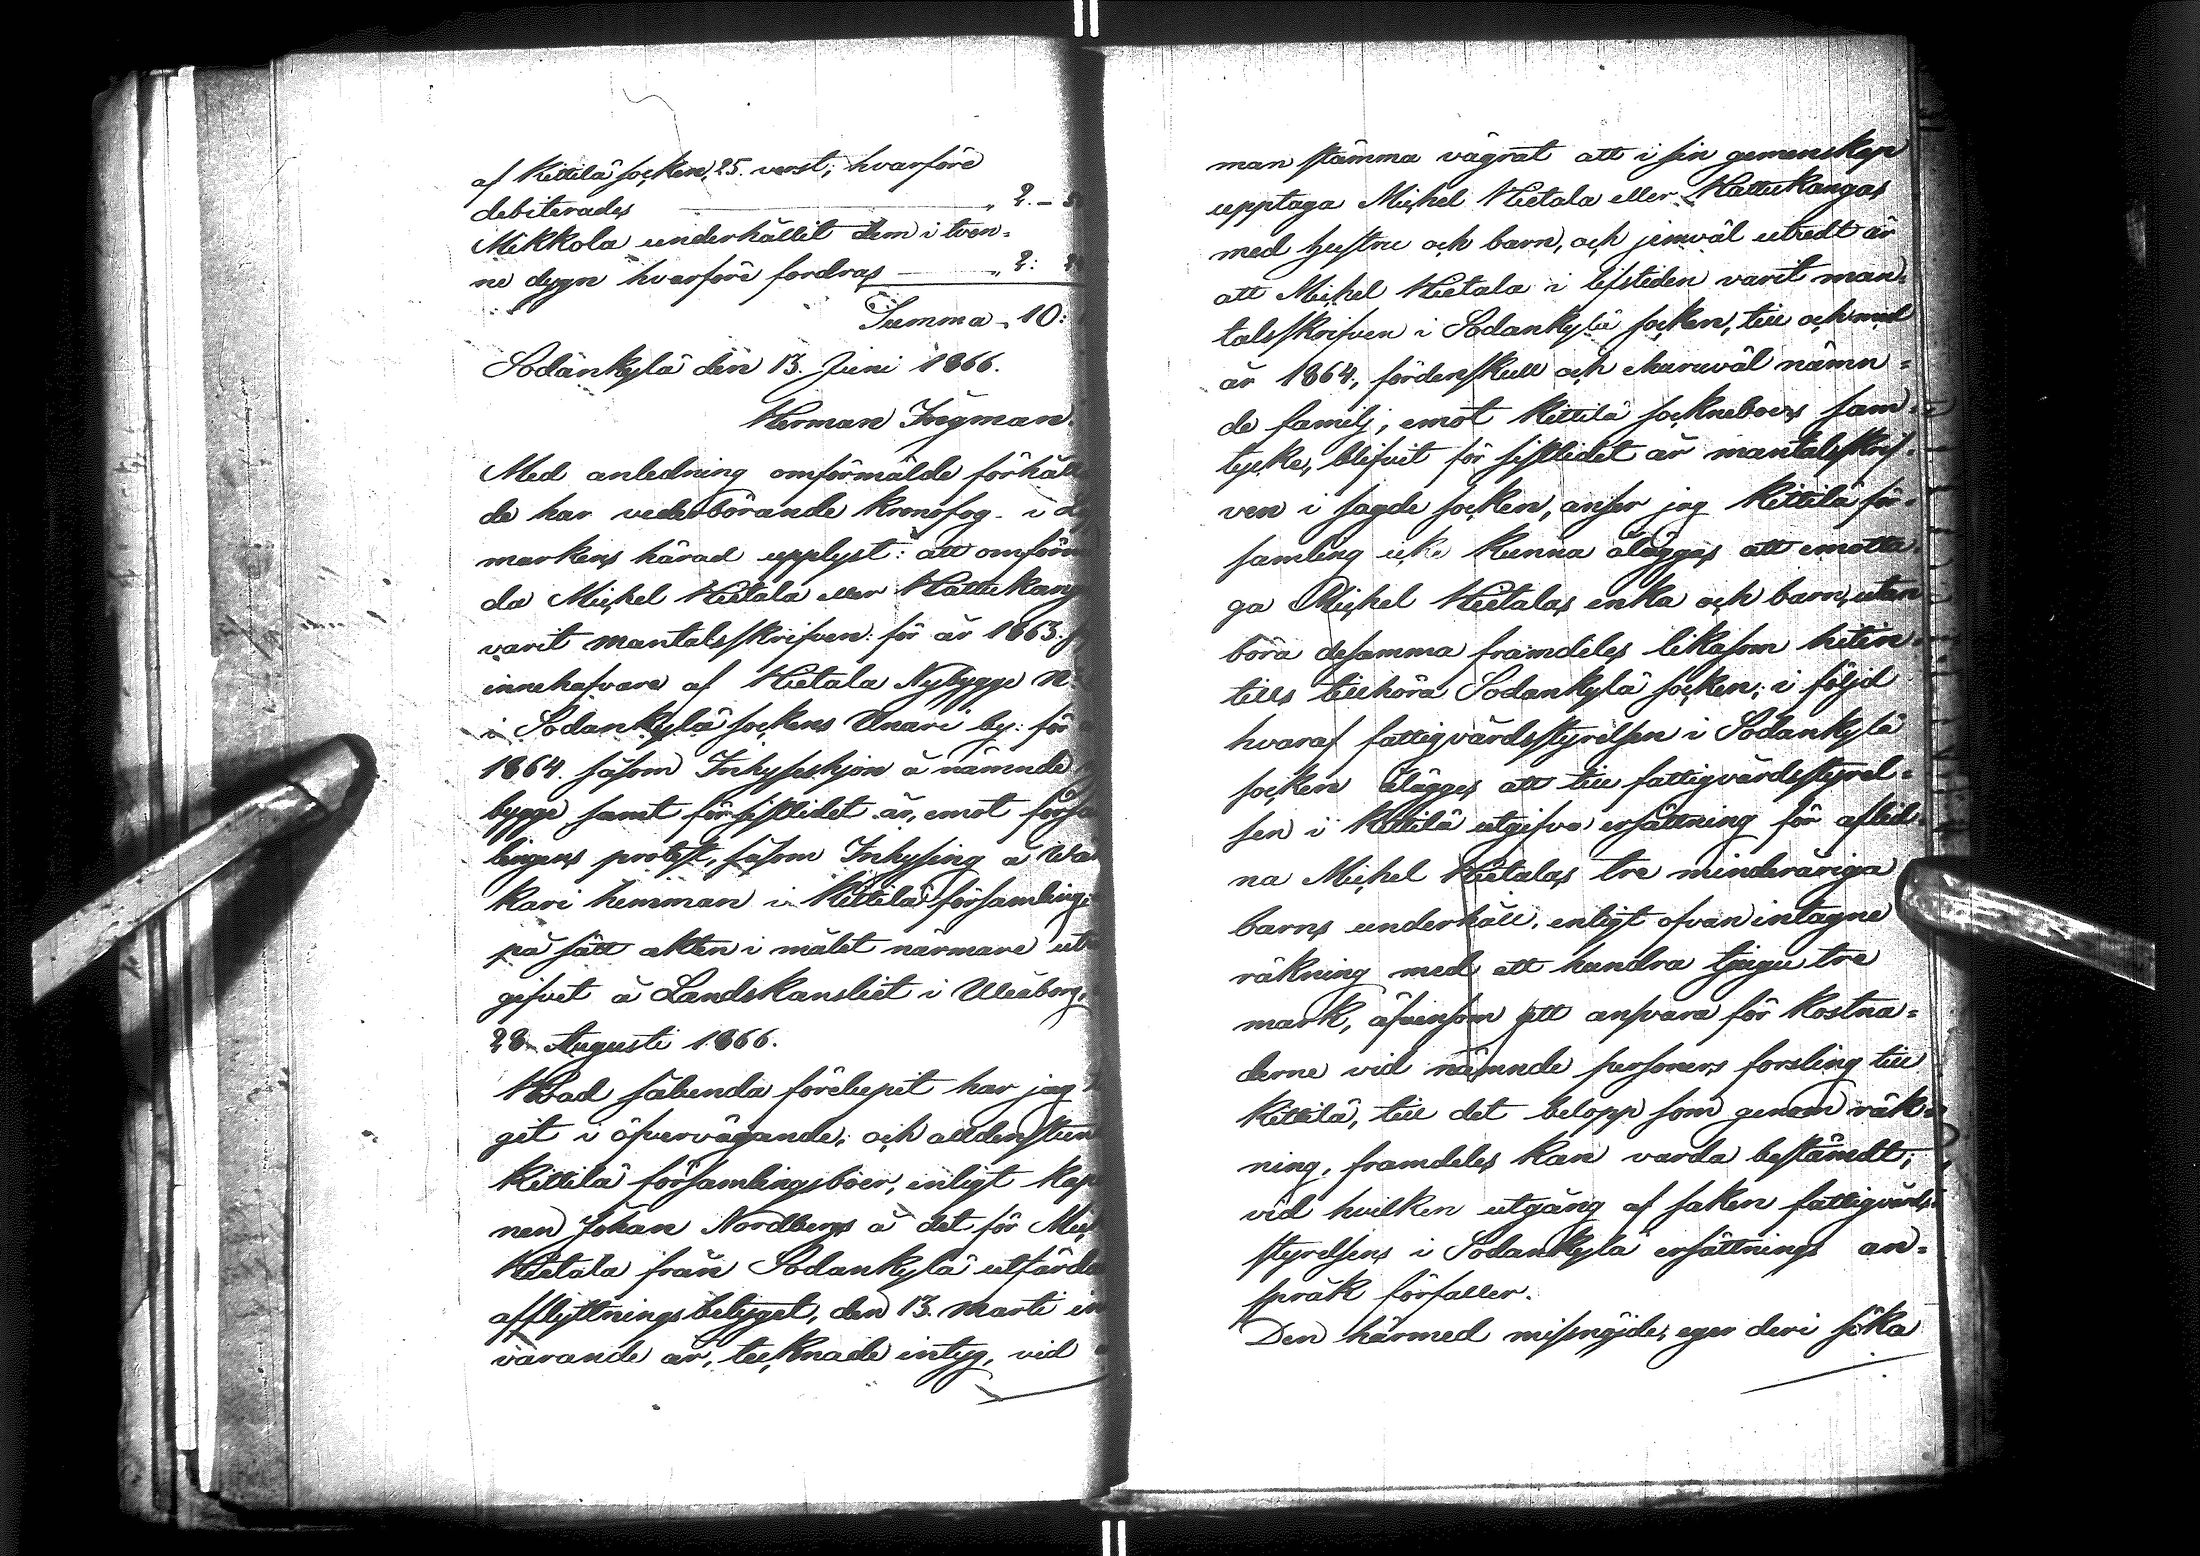 af Kittilä socken, 25. verst; hvarföre
debiterades " 2. – 5
Mikkola underhållit dem i tven-
ne dygn hvarföre fordras " 2:
Summa " 10:
Sodankylä den 13. Juni 1866.
Herman Ingman.
Med anledning omförmälde förhåll
de har vederbörande kronofog. i L
markens härad upplyst: att omförm
da Michel Hietala eller Hattukang
varit mantalsskrifven: för år 1863.
innehafvare af Hietala Nybygge N:
i Sodankylä sockens Unari by: för
1864. såsom Inhyseshjon å nämnde
bygge samt för sistledet år, emot förs
lingens protest, såsom Inhysing å
kari hemman i Kittilä församling;
på sätt akten i målet närmare ut
gifvet å Landskansliet i Uleåborg,
28 Augusti 1866.
Hvad sålunda förelupit har jag
git i öfvervägande, och alldenstun
Kittilä församlingsboer, enligt Kap
nen Johan Nordbergs å det för Mic
Hietala från Sodankylä utfärda
afflyttningsbetyget, den 13. Marti in
varande år, tecknade intyg, vid
man stämma vägrat att i sin gemenskap
upptaga Michel Hietala eller Hattukangas
med hustru och barn, och jemväl utredt är
att Michel Hietala i lifstiden varit man-
talsskrifven i Sodankylä socken, till och med
år 1864, fördenskull och ehuruväl nämn-
de familj, emot Kittilä sockneboers sam-
tycke, blifvit för sistledet år mantalsskrif-
ven i sagde socken, anser jag Kittilä för-
samling icke kunna åläggas att emotta-
ga Michel Hietalas enka och barn, utan
böra desamma framdeles likasom hitin-
tills tillhöra Sodankylä socken; i följd
hvaraf fattigvårdsstyrelsen i Sodankylä
socken ålägges att till fattigvårdsstyrel-
sen i Kittilä utgifva ersättning för aflid-
na Michel Hietalas tre minderåriga
barns underhåll, enligt ofvan intagne
räkning med ett hundra tjugu tre
mark, äfvensom att ansvara för kostna-
derne vid nämnde personers forsling till
Kittilä, till det belopp som genom räk-
ning, framdeles kan varda bestämdt;
vid hvilken utgång af saken fattigvårds-
styrelsens i Sodankylä ersättnings an-
språk förfaller.
Den härmed missnöjde, eger deri söka